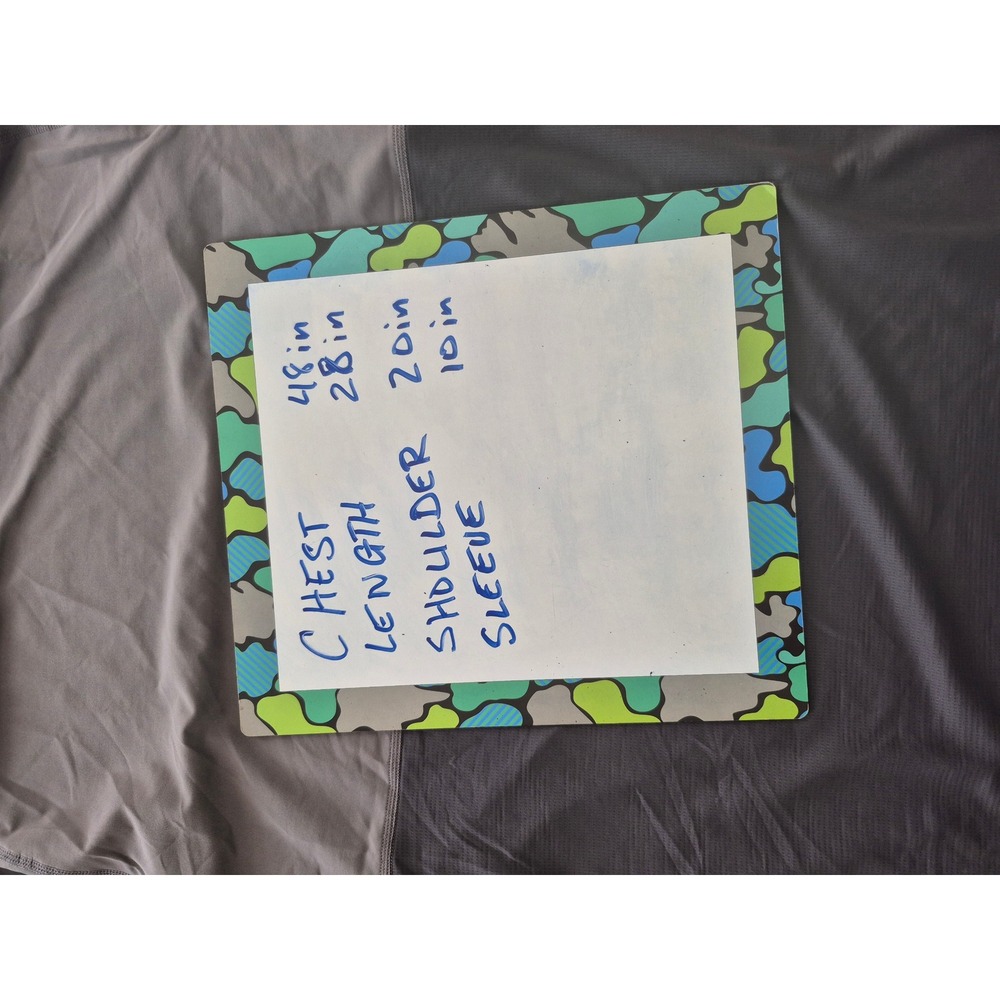 CHEST 48in
LENGTH 28in
SHOULDER 20in
SLEEVE 10in